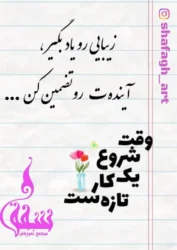 زیبایی رو یاد بگیر،
آینده‌ت رو تضمین کن ...
وقت
شروع
یک کار
تازه‌ست
shafagh_art